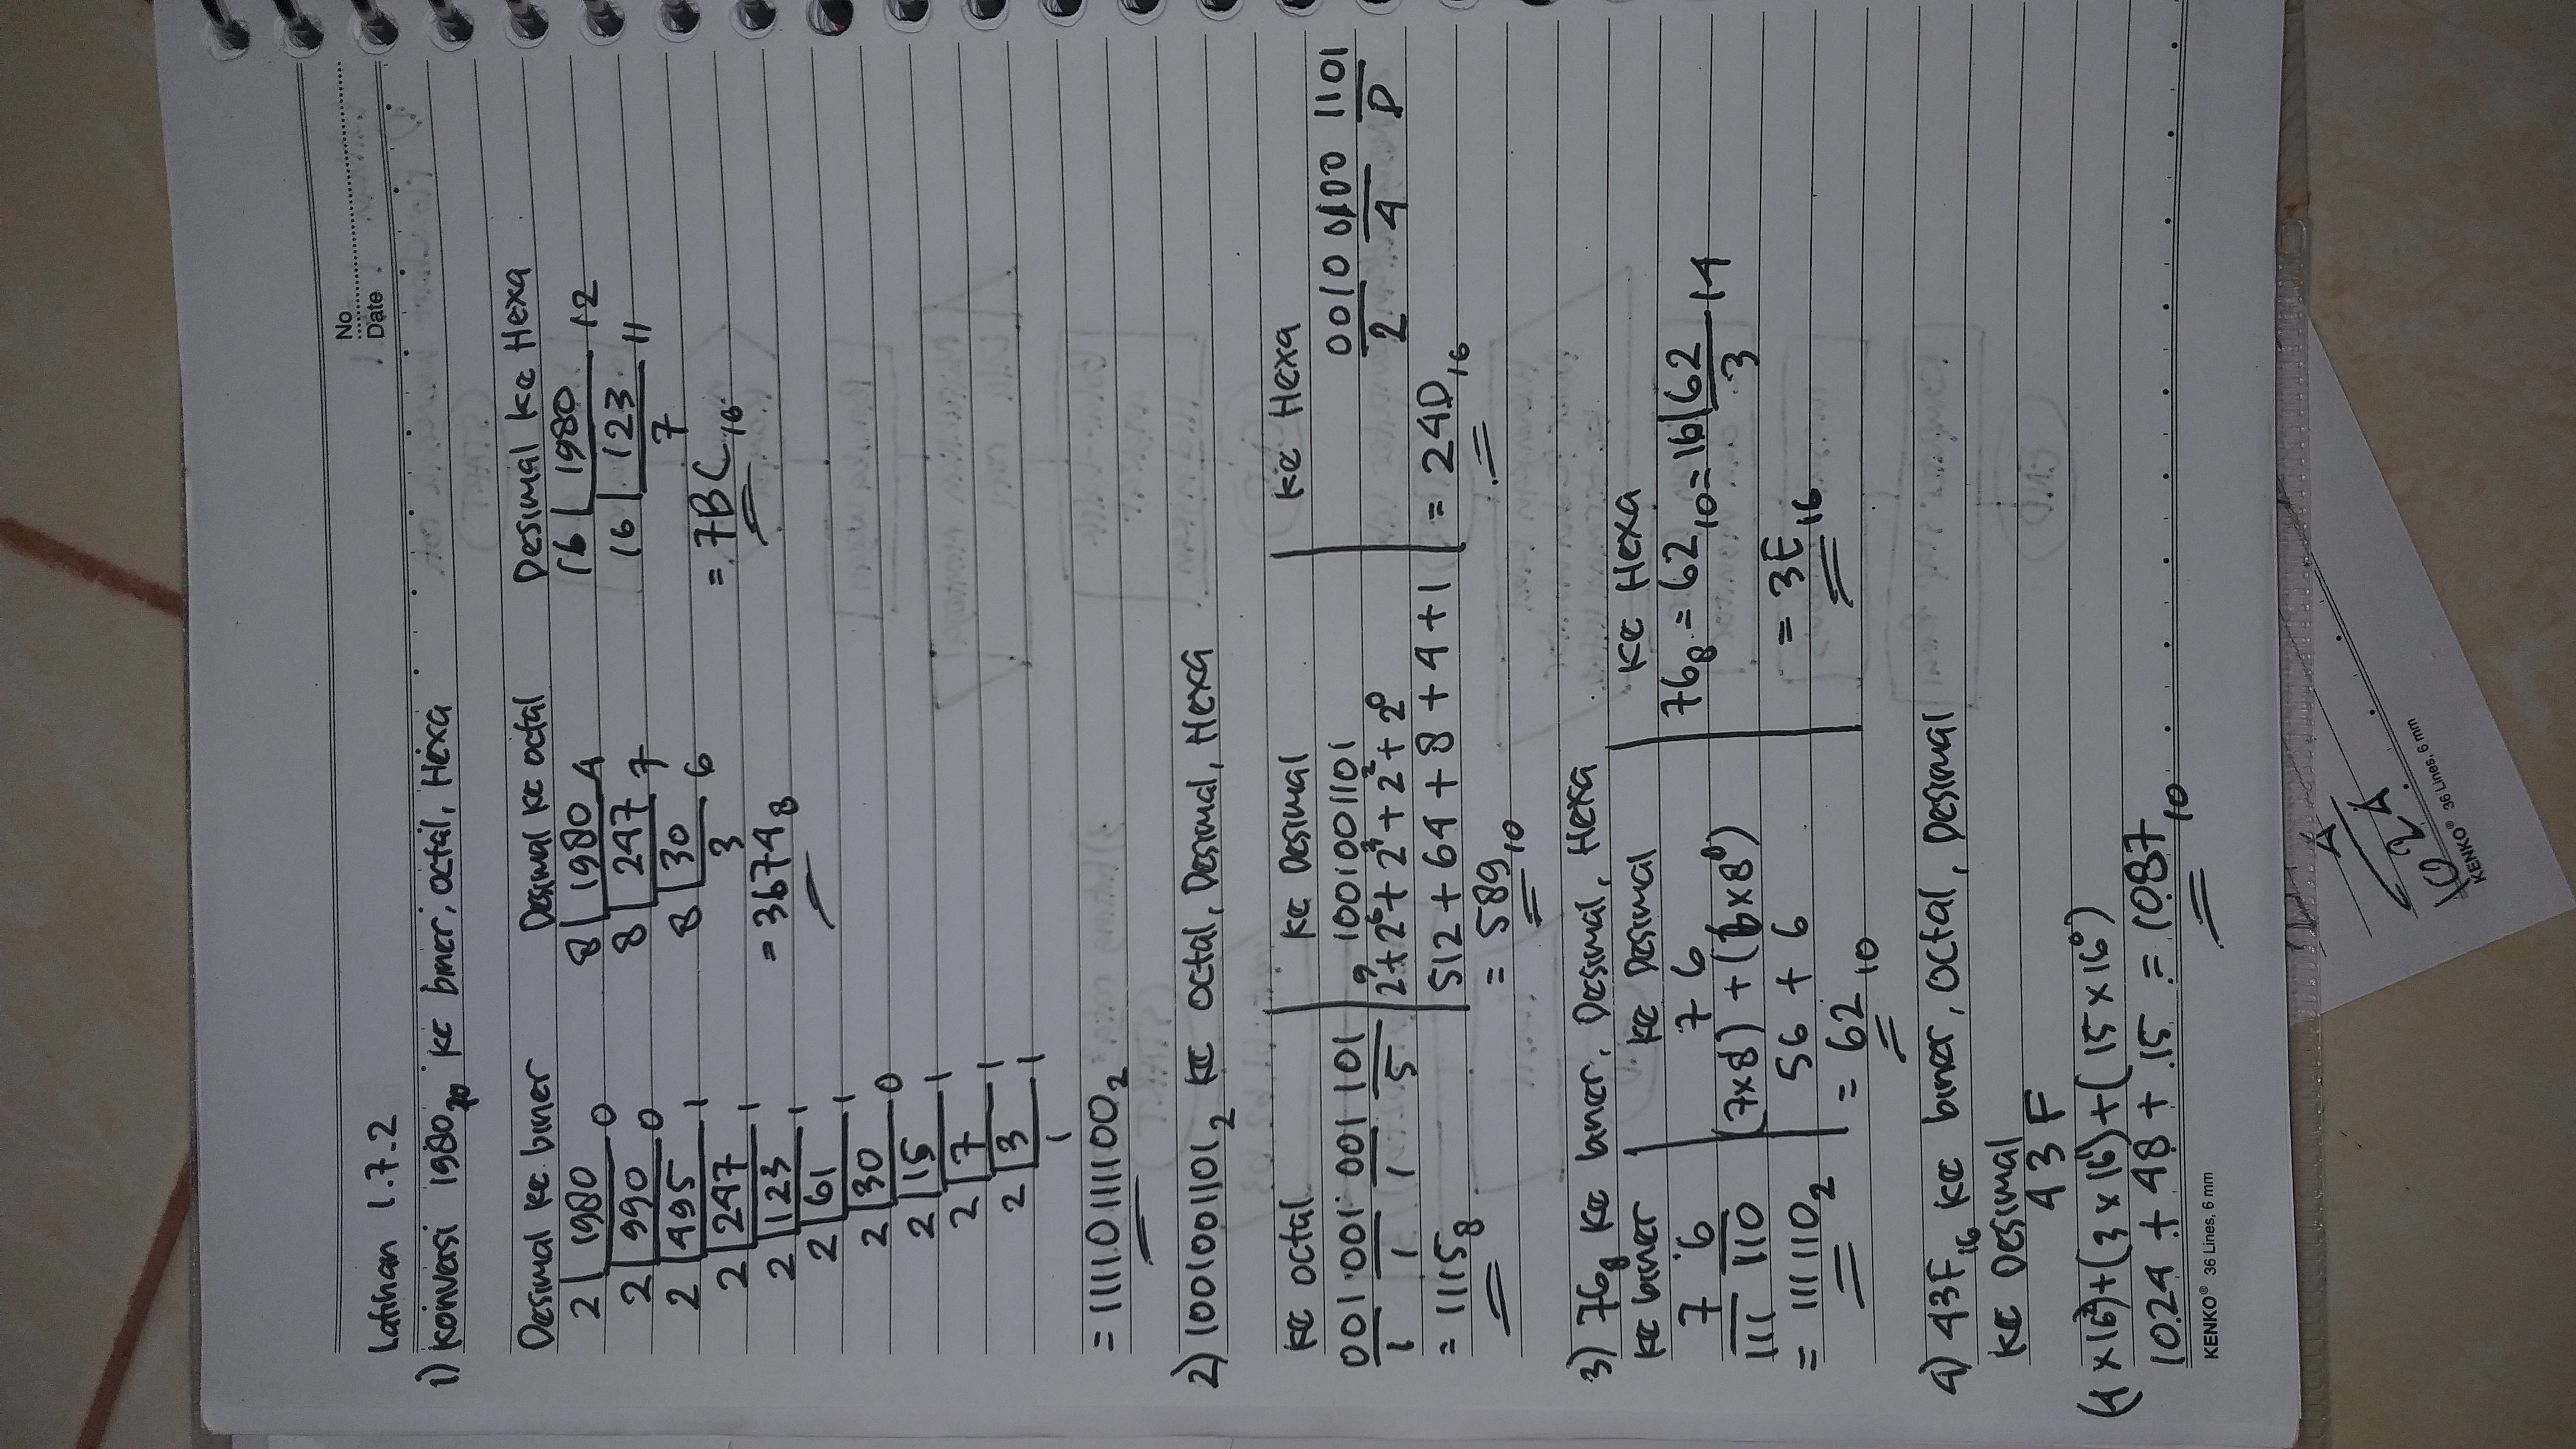 No
Date
Latihan 1.7.2
1) Konversi 1980₁₀ ke biner, octal, Hexa
Desimal ke biner
2 1980 0
2 990 0
2 495 1
2 247 1
2 123 1
2 61 1
2 30 0
2 15 1
2 7 1
2 3 1
1
= 11110111100₂
Desimal ke octal
8 1980 4
8 247 7
8 30 6
3
= 3674₈
Desimal ke Hexa
16 1980 12
16 123 11
7
= 7BC₁₆
2) 1001001101₂ ke octal, Desimal, Hexa
ke octal
001 001 001 101
1 1 1 5
= 1115₈
ke Desimal
1001001101
2⁹ + 2⁶ + 2³ + 2² + 2⁰
512 + 64 + 8 + 4 + 1
= 589₁₀
ke Hexa
0010 0100 1101
2 4 D
= 24D₁₆
3) 76₈ ke biner, Desimal, Hexa
ke biner
7 6
111 110
= 111110₂
ke Desimal
7 6
(7x8¹) + (6x8⁰)
56 + 6
= 62₁₀
ke Hexa
76₈ = 62₁₀ = 16 62 14
3
= 3E₁₆
4) 43F₁₆ ke biner, octal, Desimal
ke Desimal
43F
(4 x 16²) + (3 x 16¹) + (15 x 16⁰)
1024 + 48 + 15 = 1087₁₀
KENKO® 36 Lines, 6 mm
4
1024
KENKO® 36 Lines, 6 mm